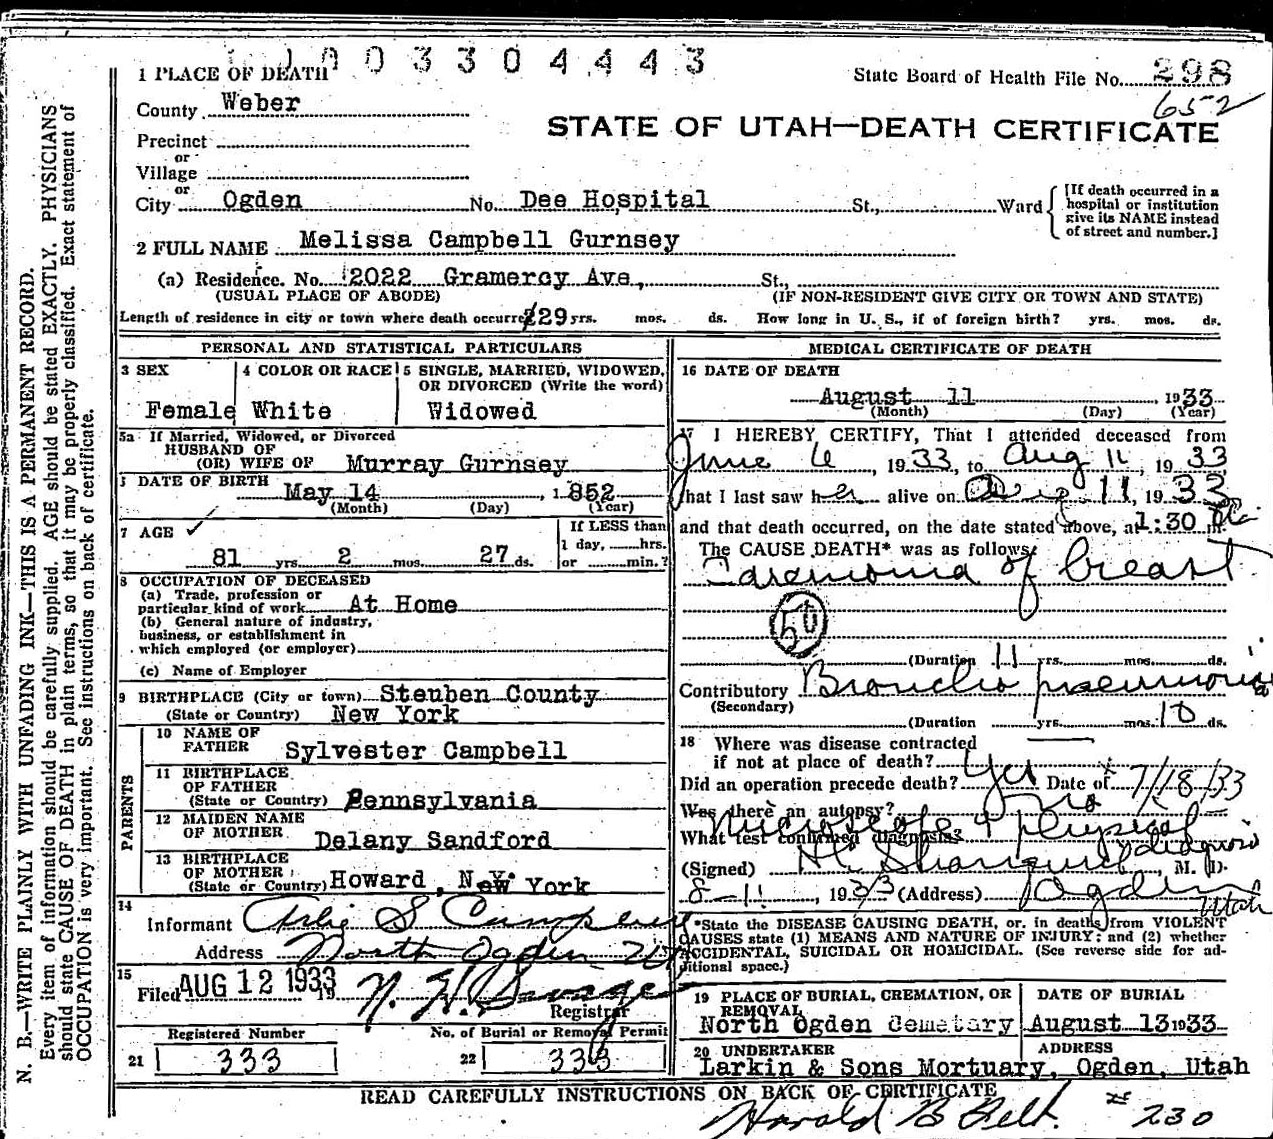 0 3 3 0 4 4 4 3
1 PLACE OF DEATH
State Board of Health File No. 298
652
County Weber
STATE OF UTAH—DEATH CERTIFICATE
Precinct
or
Village
or
City Ogden No. Dee Hospital St., Ward
[If death occurred in a hospital or institution give its NAME instead of street and number.]
2 FULL NAME Melissa Campbell Gurnsey
(a) Residence. No. 2022 Gramercy Ave, St.,
(USUAL PLACE OF ABODE) (IF NON-RESIDENT GIVE CITY OR TOWN AND STATE)
Length of residence in city or town where death occurred 29 yrs. mos. ds. How long in U. S., if of foreign birth? yrs. mos. ds.
PERSONAL AND STATISTICAL PARTICULARS
3 SEX 4 COLOR OR RACE 5 SINGLE, MARRIED, WIDOWED,
OR DIVORCED (Write the word)
Female White Widowed
5a If Married, Widowed, or Divorced
HUSBAND OF
(OR) WIFE OF Murray Gurnsey
DATE OF BIRTH May 14, 1852
(Month) (Day) (Year)
7 AGE ✓
If LESS than
1 day, ......hrs.
or ......min.?
81 yrs. 2 mos. 27 ds.
8 OCCUPATION OF DECEASED
(a) Trade, profession or
particular kind of work At Home
(b) General nature of industry,
business, or establishment in
which employed (or employer)
(c) Name of Employer
9 BIRTHPLACE (City or town) Steuben County
(State or Country) New York
PARENTS
10 NAME OF
FATHER Sylvester Campbell
11 BIRTHPLACE
OF FATHER
(State or Country) Pennsylvania
12 MAIDEN NAME
OF MOTHER Delany Sandford
13 BIRTHPLACE
OF MOTHER
(State or Country) Howard, New York
14
Informant Arlie S Campbell
Address North Ogden
15
Filed AUG 12 1933 19
Registrar
Registered Number No. of Burial or Removal Permit
21 333 22 333
MEDICAL CERTIFICATE OF DEATH
16 DATE OF DEATH
August 11, 1933
(Month) (Day) (Year)
17 I HEREBY CERTIFY, That I attended deceased from
June 6, 1933, to Aug 11, 1933
that I last saw her alive on Aug 11, 1933
and that death occurred, on the date stated above, at 1:30 m.
The CAUSE DEATH* was as follows:
Carcinoma of breast
50
(Duration 11 yrs. mos. ds.
Contributory Broncho pneumonia
(Secondary)
(Duration yrs. mos. 10 ds.
18 Where was disease contracted
if not at place of death?
Did an operation precede death? Yes Date of 7/18/33
Was there an autopsy? no
What test confirmed diagnosis? Microscope & physical diagnosis
(Signed) M. D.
8-11 1933 (Address) Ogden Utah
*State the DISEASE CAUSING DEATH, or, in deaths from VIOLENT
CAUSES state (1) MEANS AND NATURE OF INJURY; and (2) whether
ACCIDENTAL, SUICIDAL OR HOMICIDAL. (See reverse side for ad-
ditional space.)
19 PLACE OF BURIAL, CREMATION, OR
REMOVAL
DATE OF BURIAL
North Ogden Cemetary August 13 1933
20 UNDERTAKER ADDRESS
Larkin & Sons Mortuary, Ogden, Utah
READ CAREFULLY INSTRUCTIONS ON BACK OF CERTIFICATE
Harold B Felt. # 230
N. B.—WRITE PLAINLY WITH UNFADING INK—THIS IS A PERMANENT RECORD.
Every item of information should be carefully supplied. AGE should be stated EXACTLY. PHYSICIANS
should state CAUSE OF DEATH in plain terms, so that it may be properly classified. Exact statement of
OCCUPATION is very important. See instructions on back of certificate.